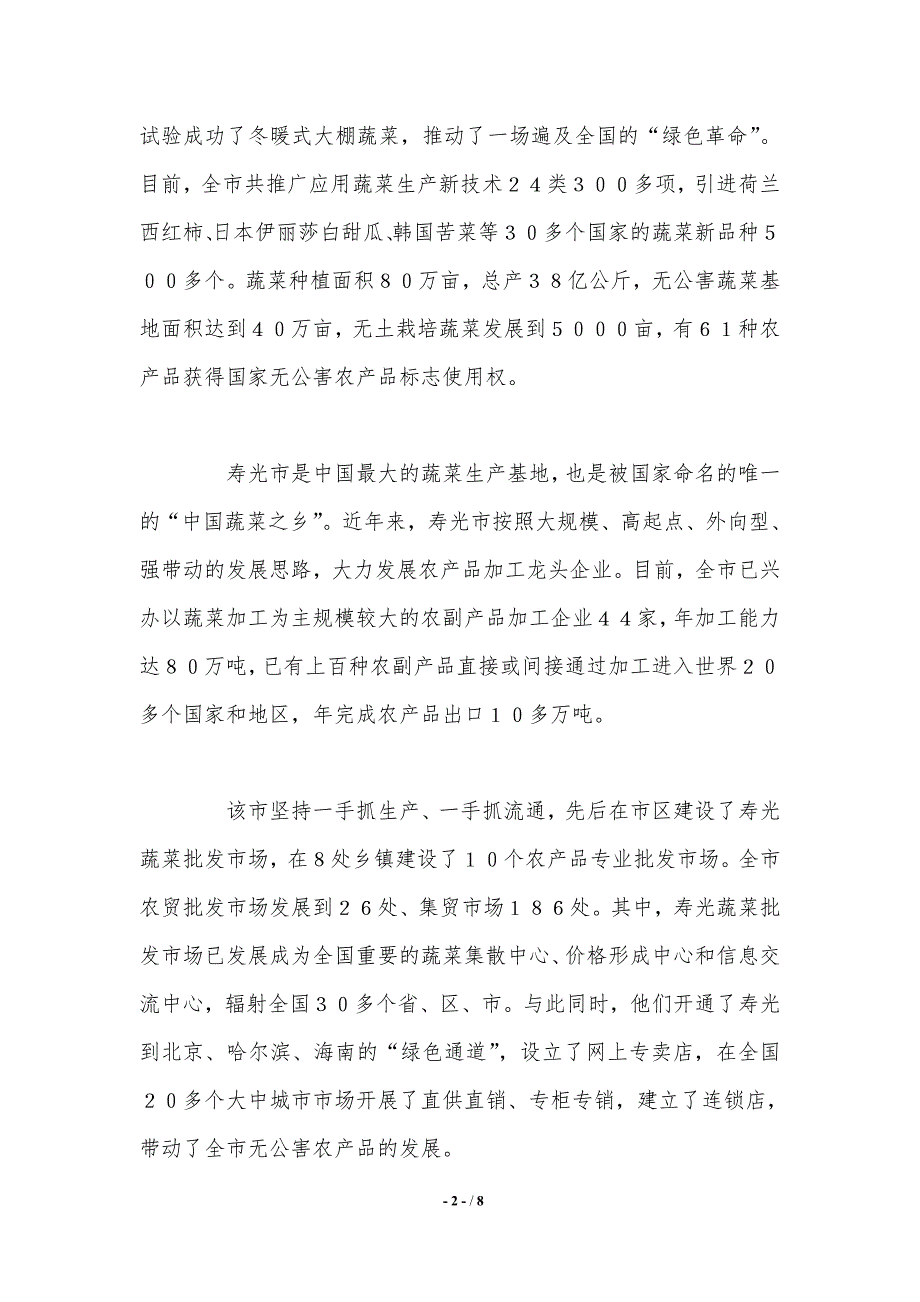 试验成功了冬暖式大棚蔬菜，推动了一场遍及全国的“绿色革命”。
目前，全市共推广应用蔬菜生产新技术２４类３００多项，引进荷兰
西红柿、日本伊丽莎白甜瓜、韩国苦菜等３０多个国家的蔬菜新品种５
００多个。蔬菜种植面积８０万亩，总产３８亿公斤，无公害蔬菜基
地面积达到４０万亩，无土栽培蔬菜发展到５０００亩，有６１种农
产品获得国家无公害农产品标志使用权。
寿光市是中国最大的蔬菜生产基地，也是被国家命名的唯一
的“中国蔬菜之乡”。近年来，寿光市按照大规模、高起点、外向型、
强带动的发展思路，大力发展农产品加工龙头企业。目前，全市已兴
办以蔬菜加工为主规模较大的农副产品加工企业４４家，年加工能力
达８０万吨，已有上百种农副产品直接或间接通过加工进入世界２０
多个国家和地区，年完成农产品出口１０多万吨。
该市坚持一手抓生产、一手抓流通，先后在市区建设了寿光
蔬菜批发市场，在８处乡镇建设了１０个农产品专业批发市场。全市
农贸批发市场发展到２６处、集贸市场１８６处。其中，寿光蔬菜批
发市场已发展成为全国重要的蔬菜集散中心、价格形成中心和信息交
流中心，辐射全国３０多个省、区、市。与此同时，他们开通了寿光
到北京、哈尔滨、海南的“绿色通道”，设立了网上专卖店，在全国
２０多个大中城市市场开展了直供直销、专柜专销，建立了连锁店，
带动了全市无公害农产品的发展。
- 2 - / 8